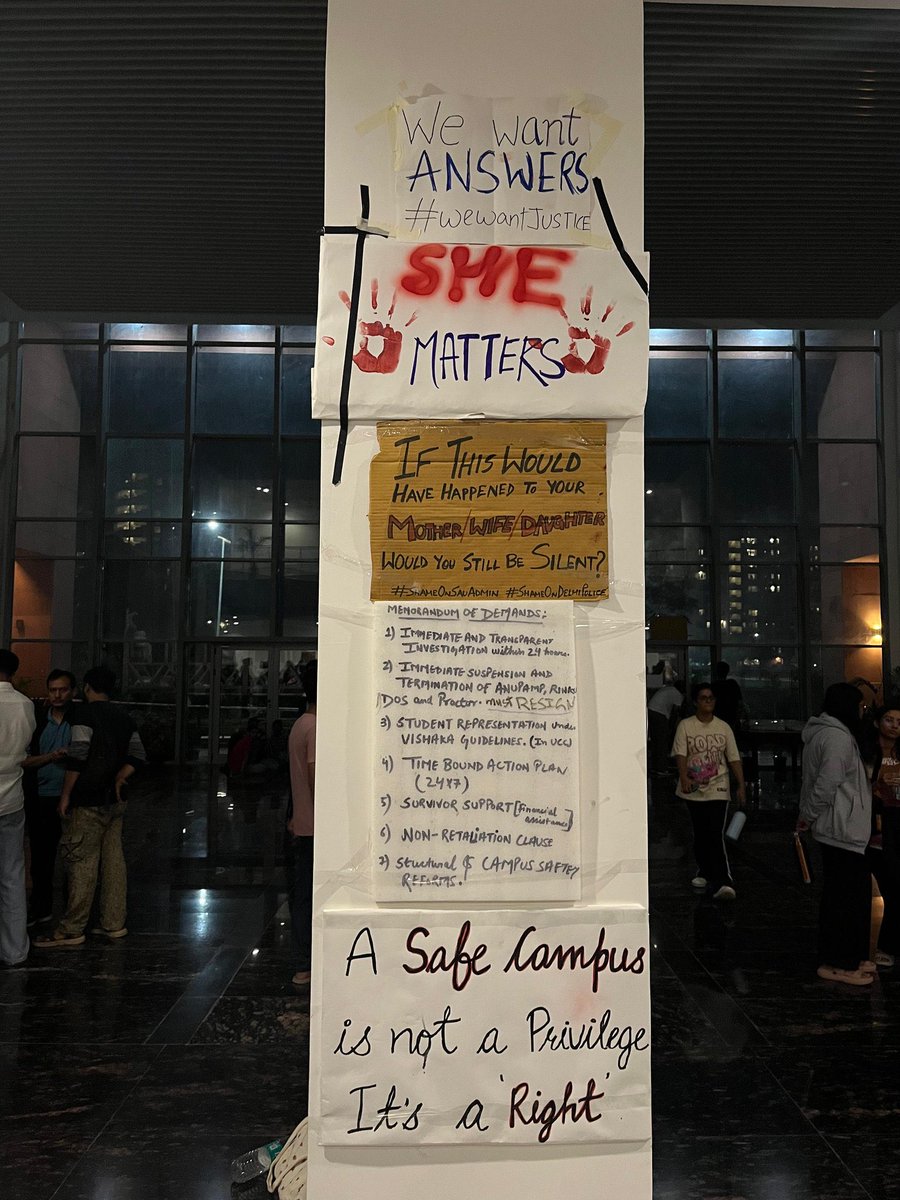 We want
ANSWERS
#wewantJUSTICE
SHE
MATTERS
IF THIS WOULD
HAVE HAPPENED TO YOUR
MOTHER/WIFE/DAUGHTER
WOULD YOU STILL BE SILENT?
#SHAMEONSAUADMIN #SHAMEONDELHIPOLICE
MEMORANDUM OF DEMANDS:
1) IMMEDIATE AND TRANSPARENT
INVESTIGATION within 24 hours.
2) IMMEDIATE SUSPENSION AND
TERMINATION OF ANUPAMP,
DOS and Proctor. must RESIGN
3) STUDENT REPRESENTATION under
VISHAKA GUIDELINES. (In UCC)
4) TIME BOUND ACTION PLAN
(24X7)
5) SURVIVOR SUPPORT [financial
assistance]
6) NON-RETALIATION CLAUSE
7) Structural & CAMPUS SAFTEY
REFORMS.
A Safe Campus
is not a Privilege
It's a 'Right'
ROAD